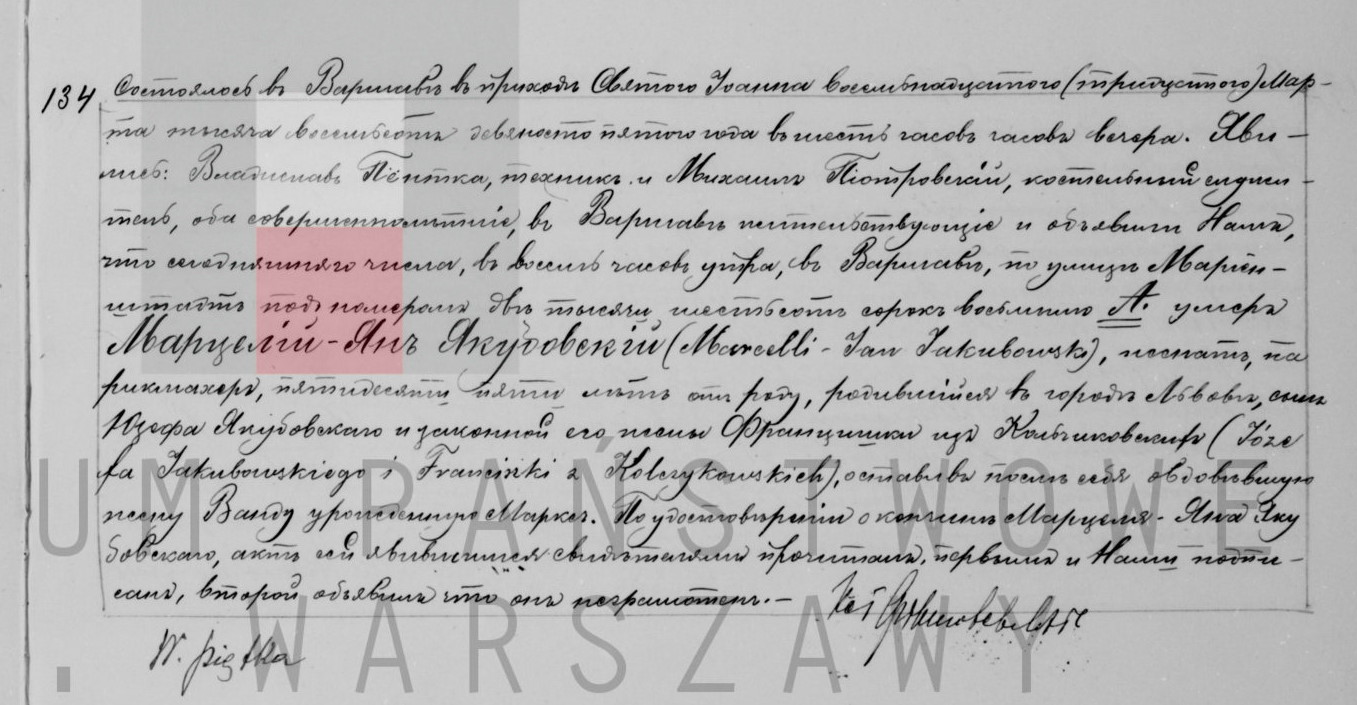 134 Состоялось въ Варшавѣ въ приходѣ Святого Іоанна восемьнадцатого (тридцатого) Мар-
та тысяча восемьсотъ девяносто пятого года въ шесть часовъ часовъ вечера. Яви-
лись: Владиславъ Піонтка, техникъ и Михаилъ Піотровскій, костельный служи-
тель, оба совершеннолѣтніе, въ Варшавѣ жительствующіе и объявили Намъ,
что сегодняшняго числа, въ восемь часовъ утра, въ Варшавѣ, по улицѣ Маріен-
штадтъ подъ номеромъ двѣ тысячи шестьсотъ сорокъ восьмымъ А. умеръ
Марцелій-Янъ Якубовскій (Marcelli-Jan Jakubowski), женатъ, па
рикмахеръ, пятидесяти пяти лѣтъ отъ роду, родившійся въ городѣ Львовѣ, сынъ
Юзефа Якубовскаго и законной его жены Францишки изъ Кольчиковскихъ (Józe
fa Jakubowskiego i Franciszki z Kolczykowskich), оставивъ послѣ себя овдовѣвшую
жену Ванду урожденную Марксъ. По удостовѣреніи о кончинѣ Марцелія-Яна Яку
бовскаго, актъ сей явившимся свидѣтелямъ прочитанъ, первымъ и Нами подпи-
санъ, второй объявилъ что онъ неграмотенъ.-
W. Piętka
UM PAŃSTWOWE
. WARSZAWY